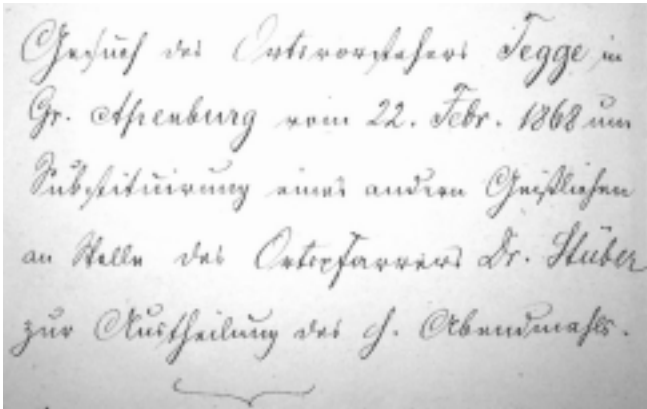 Gesuch des Ortsvorstehers Tegge in
Gr. Apenburg vom 22. Febr. 1868 um
Substituirung eines andern Geistlichen
an Stelle des Ortspfarrers Dr. Stüber
zur Austheilung des h. Abendmahls.